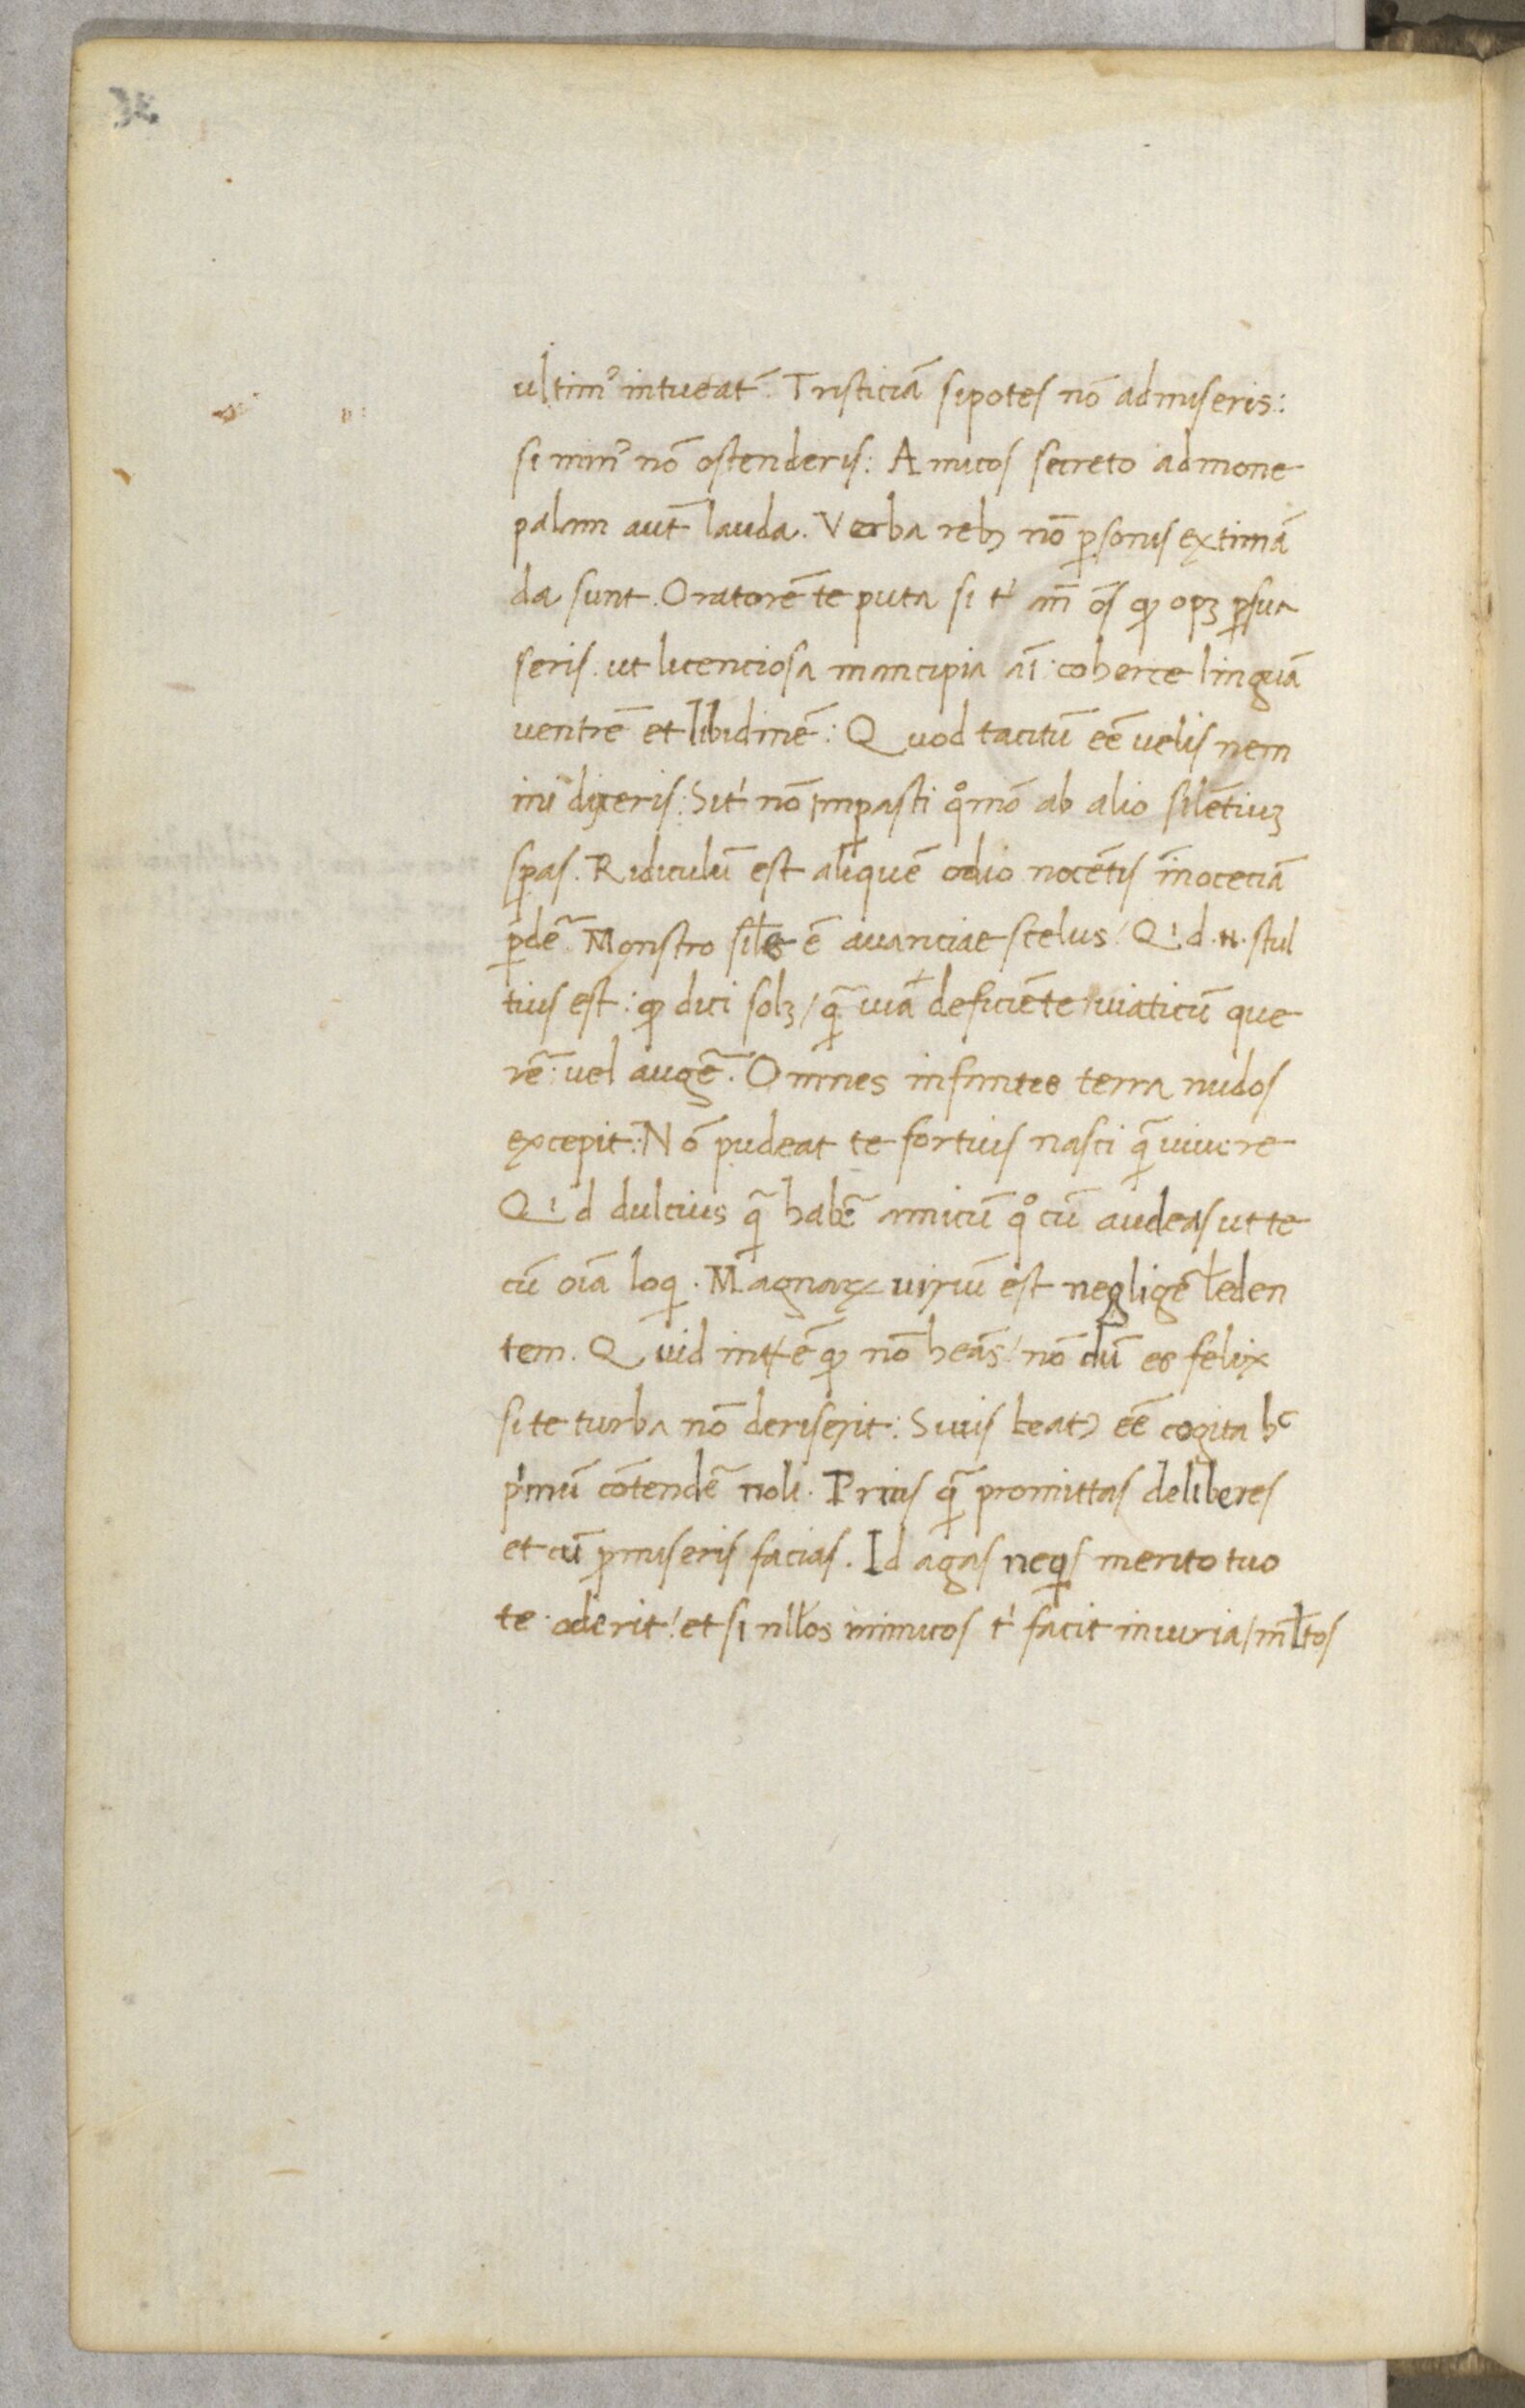 ultimꝰ intueat᷑. Tristiciā si potes nō admiseris:
si minꝰ nō ostenderis: Amicos secreto admone
palam aut̄ lauda. Verba rebꝫ nō ꝑsonis extimā
da sunt. Oratorē te puta si t' an̄ oēs qꝫ opꝫ ꝑsua
seris. ut licenciosa mancipia aī: coherce linguā
ventrē et libidinē: Quod tacitū eē velis nem
ini dixeris: Si t' nō imꝑasti qͦmō ab alio silētiuꝫ
speras. Ridiculū est aliquē odio nocētis īnocēciā
ꝑdē. Monstro sile ē avariciae scelus! Qⁱd .n. stul
tius est: qꝫ dici solꝫ / qꝫ̄ viā deficiēte / viaticū que
rē: vel augē. Omnes infantes terra nudos
excepit: Nō pudeat te fortius nasci qꝫ̄ vivere
Qⁱd dulcius qꝫ̄ habē amicū qͦ cū audeas ut te
cū oīa loqi. Magnaꝝ viriū est negligē leden
tem. Quid int̄ē qꝫ nō heās! nō dū es felix
si te turba nō deriserit: Si vis beatꝰ eē cogita hͨ
pⁱmū cōtendē noli. Prius qꝫ̄ promittas deliberes
et cū ꝓmiseris facias. Id agas neqⁱs merito tuo
te oderit! et si nllos inimicos t' facit iniuria / mltos